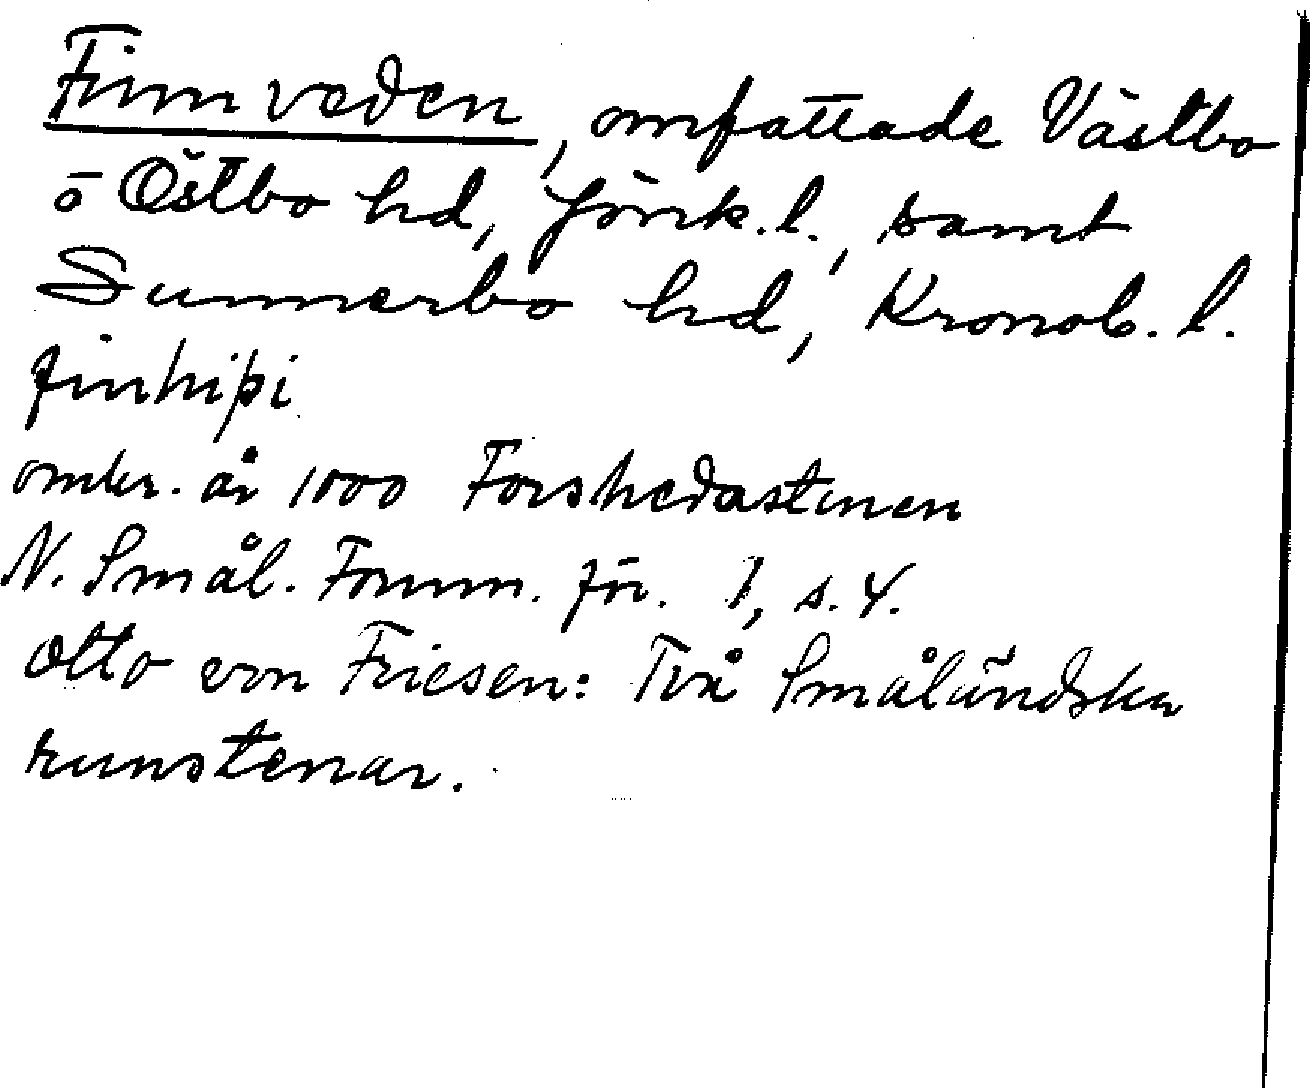 Finnveden, omfattade Västbo
o Östbo hd, Jönk.l., samt
Sunnerbo hd, Kronob. l.
finhiþi
omkr. år 1000 Forshedastenen
N. Smål. Fornm. för. 1, s. 4.
Otto von Friesen: Två Småländska
runstenar.